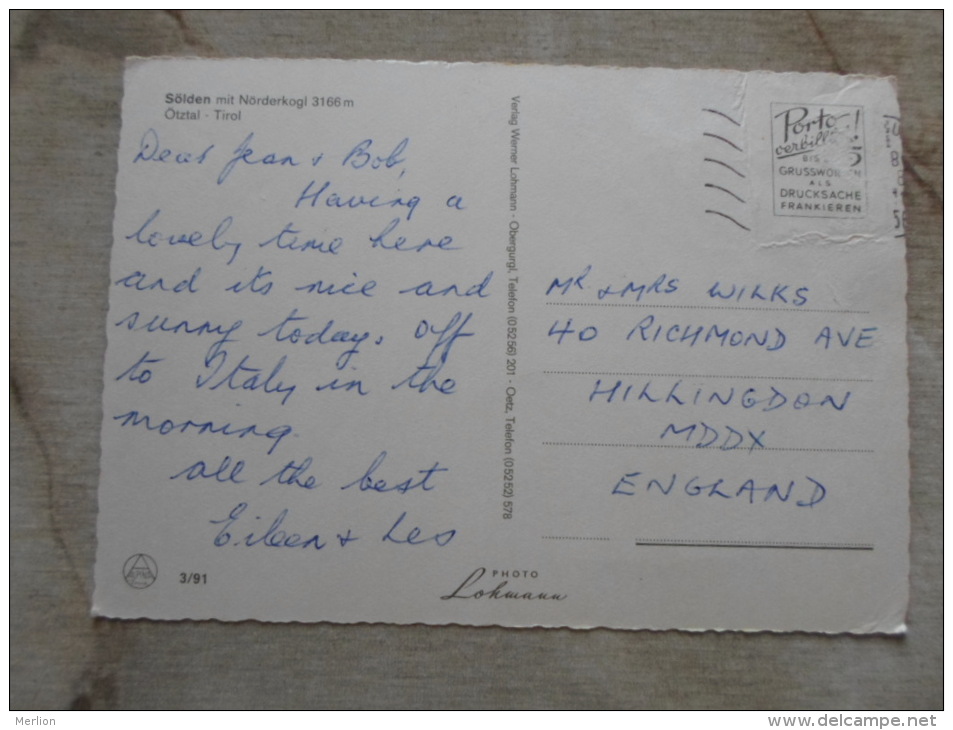 Sölden mit Nörderkogl 3166 m
Ötztal - Tirol
Dear Jean & Bob,
Having a
lovely time here
and its nice and
sunny today. Off
to Italy in the
morning.
all the best
Eileen & Les
3/91
Verlag Werner Lohmann · Obergurgl, Telefon (05256) 201 · Oetz, Telefon (05252) 578
PHOTO
Lohmann
Porto
BIS 5
ALS
DRUCKSACHE
FRANKIEREN
MR & MRS WILKS
40 RICHMOND AVE
HILLINGDON
MDDX
ENGLAND
Merlion
www.delcampe.net